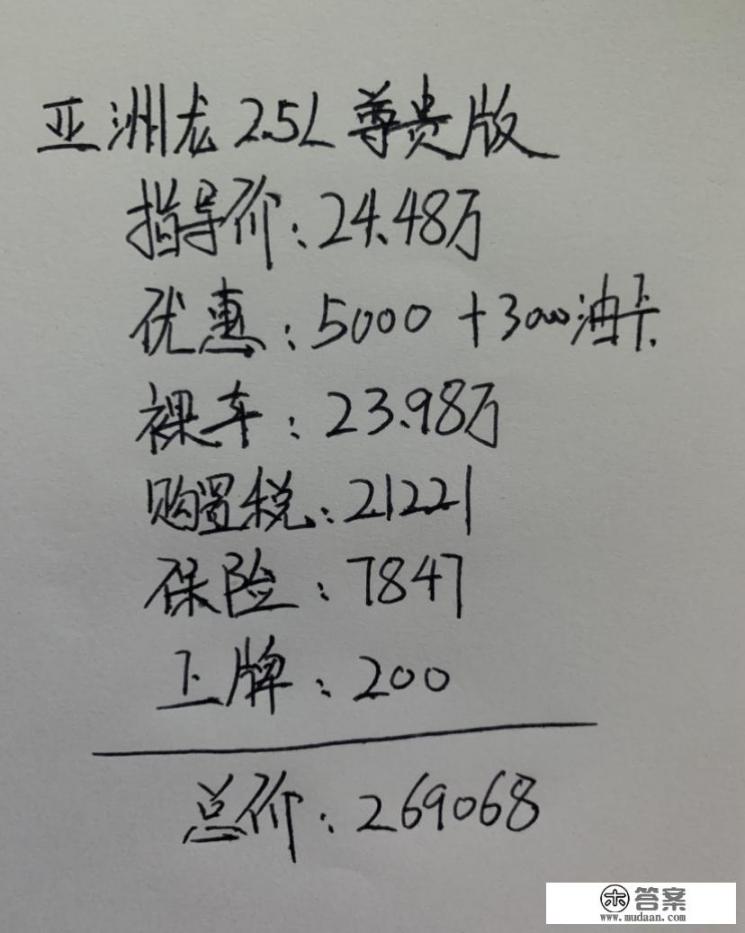 亚洲龙 2.5L 尊贵版
指导价：24.48万
优惠：5000 +3000油卡
裸车：23.98万
购置税：21221
保险：7847
上牌：200
总价：269068
答案
www.mudaan.com